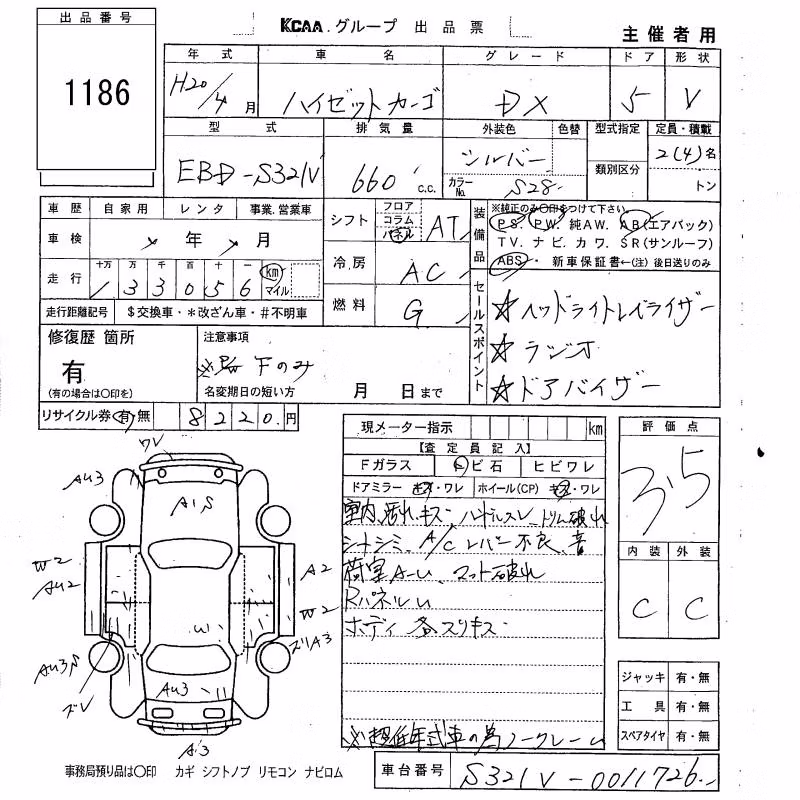 出品番号
1186
KCAA.グループ 出品票
主催者用
年式 車名 グレード ドア 形状
H20/4月 ハイゼットカーゴ DX 5 V
型式 排気量 外装色 色替 型式指定 定員・積載
EBD-S321V 660 c.c. シルバー 2(4)名
カラーNo. S28 類別区分 トン
車歴 自家用 レンタ 事業.営業車
車検 年 月
走行 十万 万 千 百 十 一 km マイル
133056
走行距離記号 $交換車・*改ざん車・#不明車
シフト フロア コラム パネル AT
冷房 AC
燃料 G
装備品
※純正のみ〇印をつけて下さい
PS. PW. 純AW. AB(エアバック)
TV. ナビ. カワ. SR(サンルーフ)
ABS. 新車保証書←(注)後日送りのみ
セールスポイント
☆ヘッドライトレベライザー
☆ラジオ
☆ドアバイザー
修復歴 箇所
有
(有の場合は〇印を)
注意事項
下のみ
名変期日の短い方 月 日まで
リサイクル券 有・無 8220.円
現メーター指示 km
【査定員記入】
Fガラス トビ石 ヒビワレ
ドアミラー キズ・ワレ ホイール(CP) キズ・ワレ
室内汚れ.キズ ハンドルスレ トリム破れ
シートシミ、A/Cレバー不良、音
荷室A-U、マット破れ
RパネルU
ボディ各スリキズ
※超低年式車の為ノークレーム
評価点
3.5
内装 外装
C C
ジャッキ 有・無
工具 有・無
スペアタイヤ 有・無
ワレ
AU3
A1S
W2
AU2
A2
W2
ズリA3
U
AU3S
ズレ
AU3
A3
事務局預り品は〇印 カギ シフトノブ リモコン ナビロム
車台番号 S321V-0011726